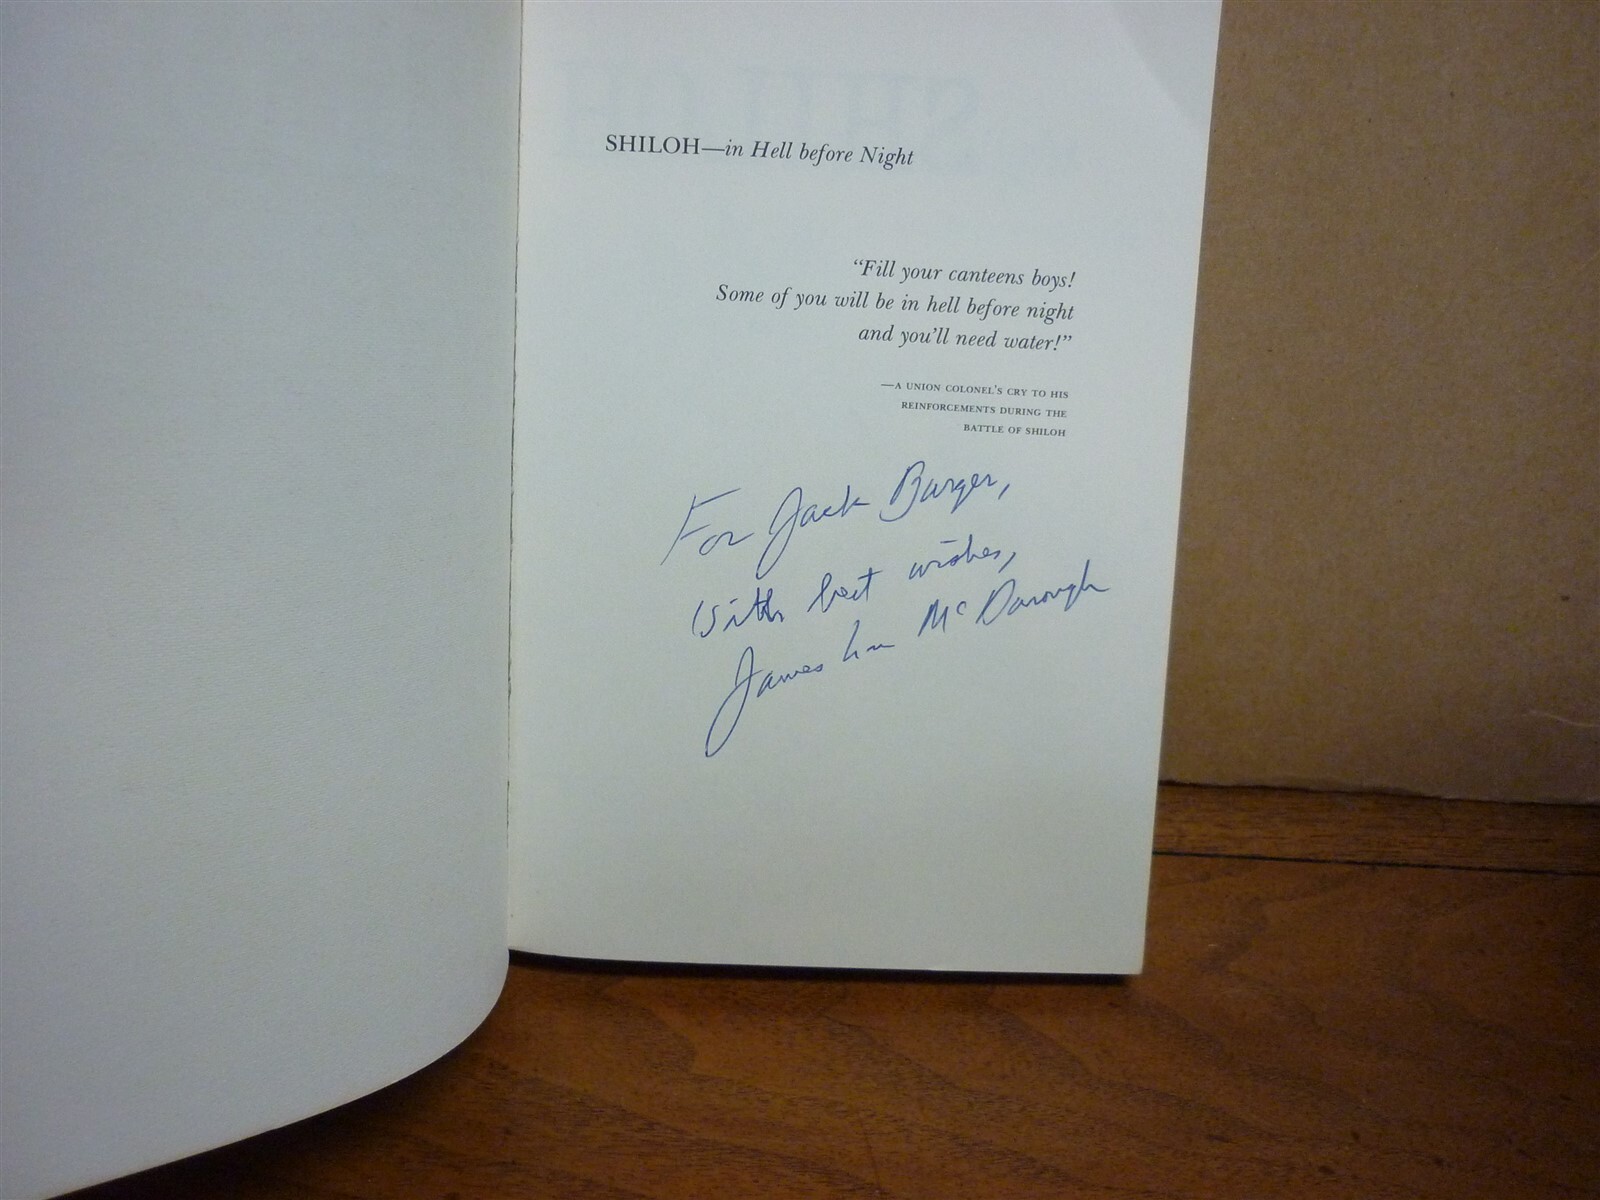 SHILOH—in Hell before Night
“Fill your canteens boys!
Some of you will be in hell before night
and you’ll need water!”
—A UNION COLONEL’S CRY TO HIS
REINFORCEMENTS DURING THE
BATTLE OF SHILOH
For Jack Burger,
With best wishes,
James Lee McDonough